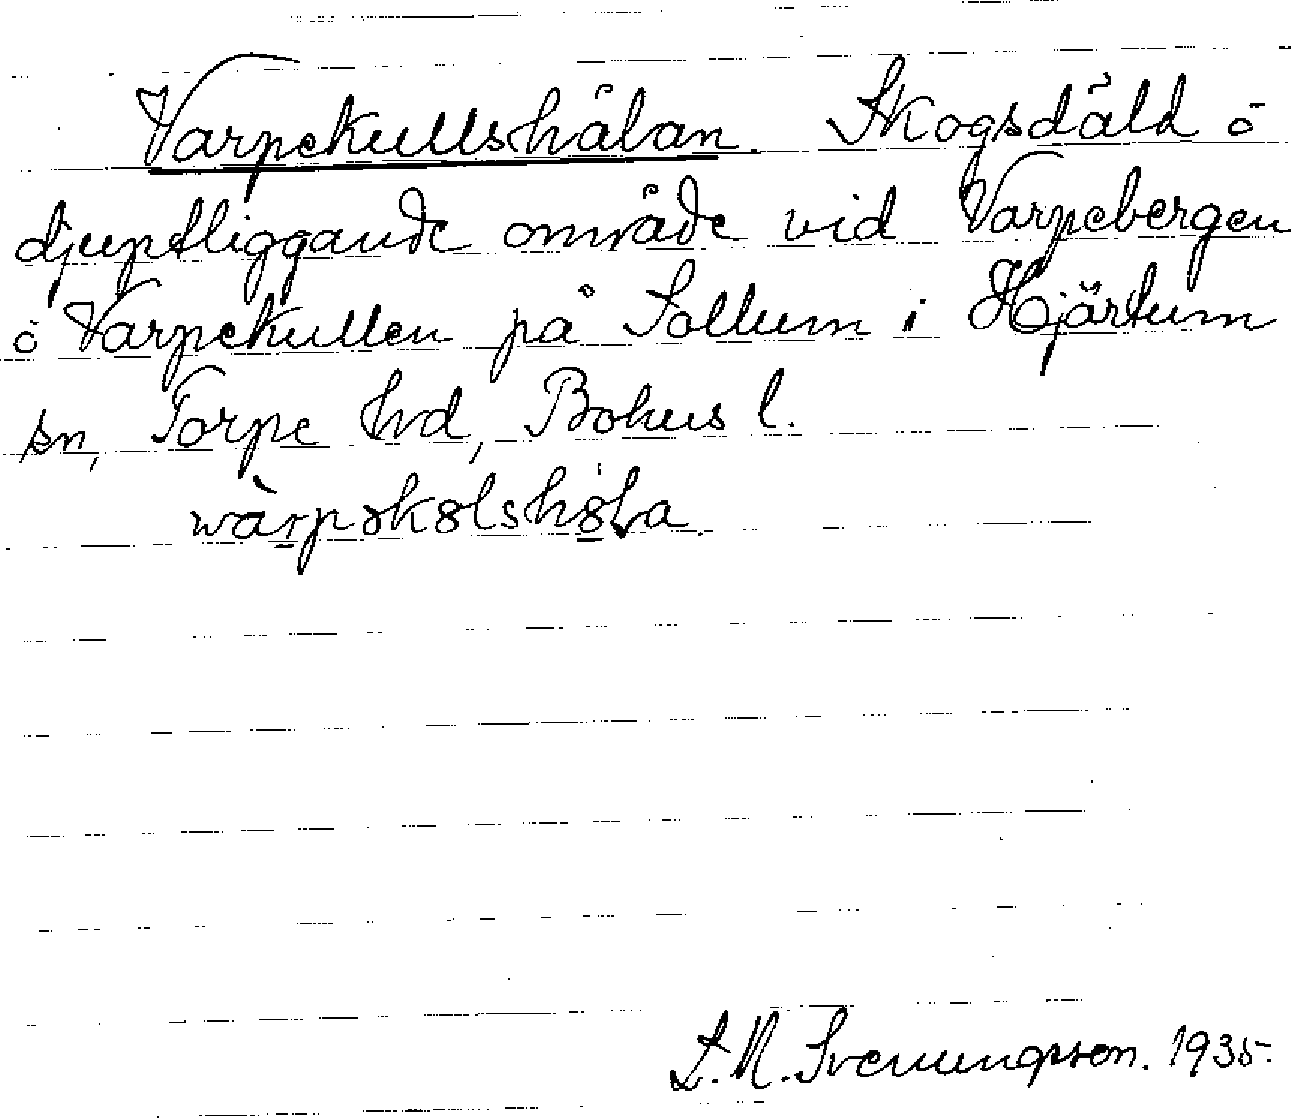 Varpekullshålan. Skogsdåld ö
djuptliggande område vid Varpebergen
ö Varpekullen på Sollum i Hjärtum
sn, Torpe hrd, Bohus l.
wàrpəkɵlshɵLa.
L. N. Svenungsson. 1935.